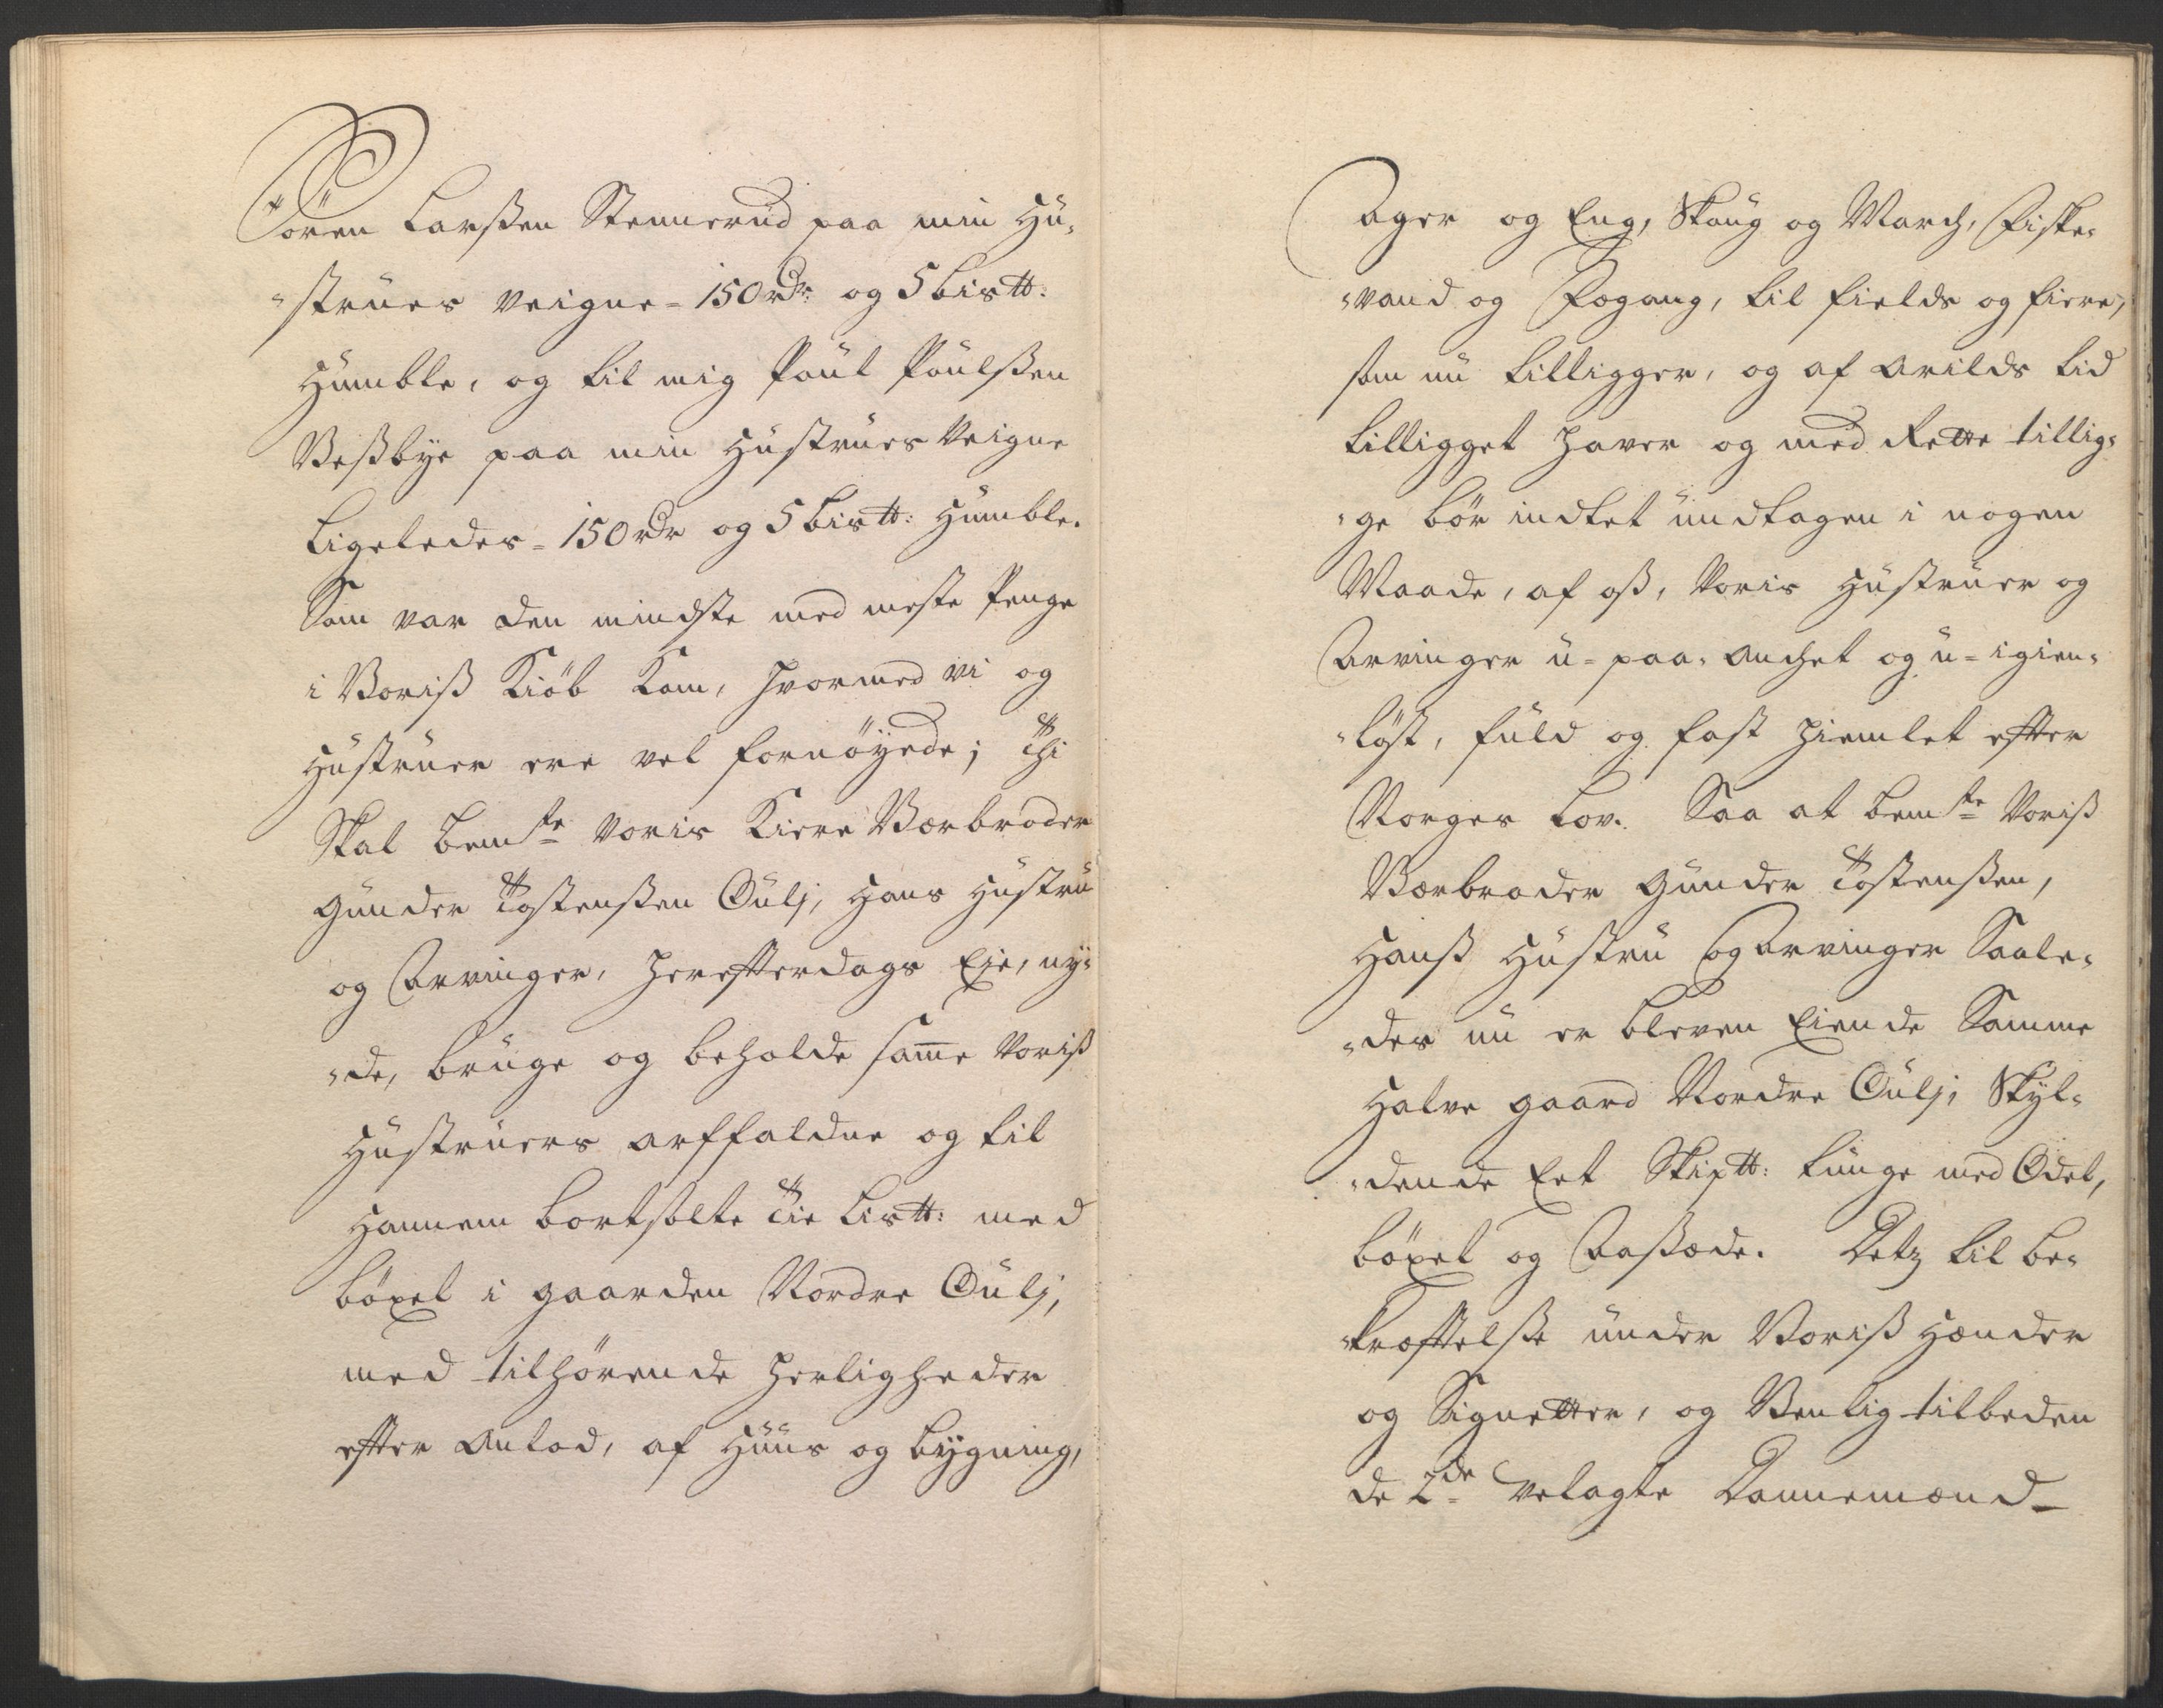 Sören Larsßen Stennerud paa min Hu-
-strues veigne = 150 rdr: og 5 bis℔:
Humble, og til mig Poul Poulsßen
Weßbÿe paa min Hustrues veigne
Ligeledes = 150 rdr og 5 bis℔: Humble.
Som var den mindste med meste Penge
i Voriß Kiöb kom, hvormed vi og
Hustruer ere vel fornöÿede; Thi
Skal bemte voris Kiere Værbroder
Gunder Tostensßen Gulj, Hans Hustru
og Arvinger, herefterdags Eje, nÿ-
-de, bruge og beholde samme voriß
Hustruers arffaldne og til
Hannem bortsolte Tie Lis℔: med
böxel i gaarden Nordre Gulj,
med tilhörende herligheder
efter anlod, af Huus og bÿgning,
Ager og Eng, Skoug og March, Fiske-
-vand og Fægang, til fields og fiere,
som nu tilligger, og af Arilds tid
tilligget haver og med Rette tillig-
-ge bör indtet undtagen i nogen
Maade, af oß, voris Hustruer og
Arvinger u-paa-anchet og u-igien-
-löst, fuld og fast hiemlet efter
Norges Lov. Saa at bemte voriß
Værbroder Gunder Tostensßen,
Hanß Hustru og Arvinger Saale-
-des nu er bleven Eiende Samme
Halve gaard Nordre Gulj, Skÿl-
-dende Eet Skip℔: tunge med Odel,
böxel og Aaßæde. Detz til be-
-kræftelße under Voriß Hænder
og Signetter, og Venlig tilbeden
de 2de velagte Dannemænd